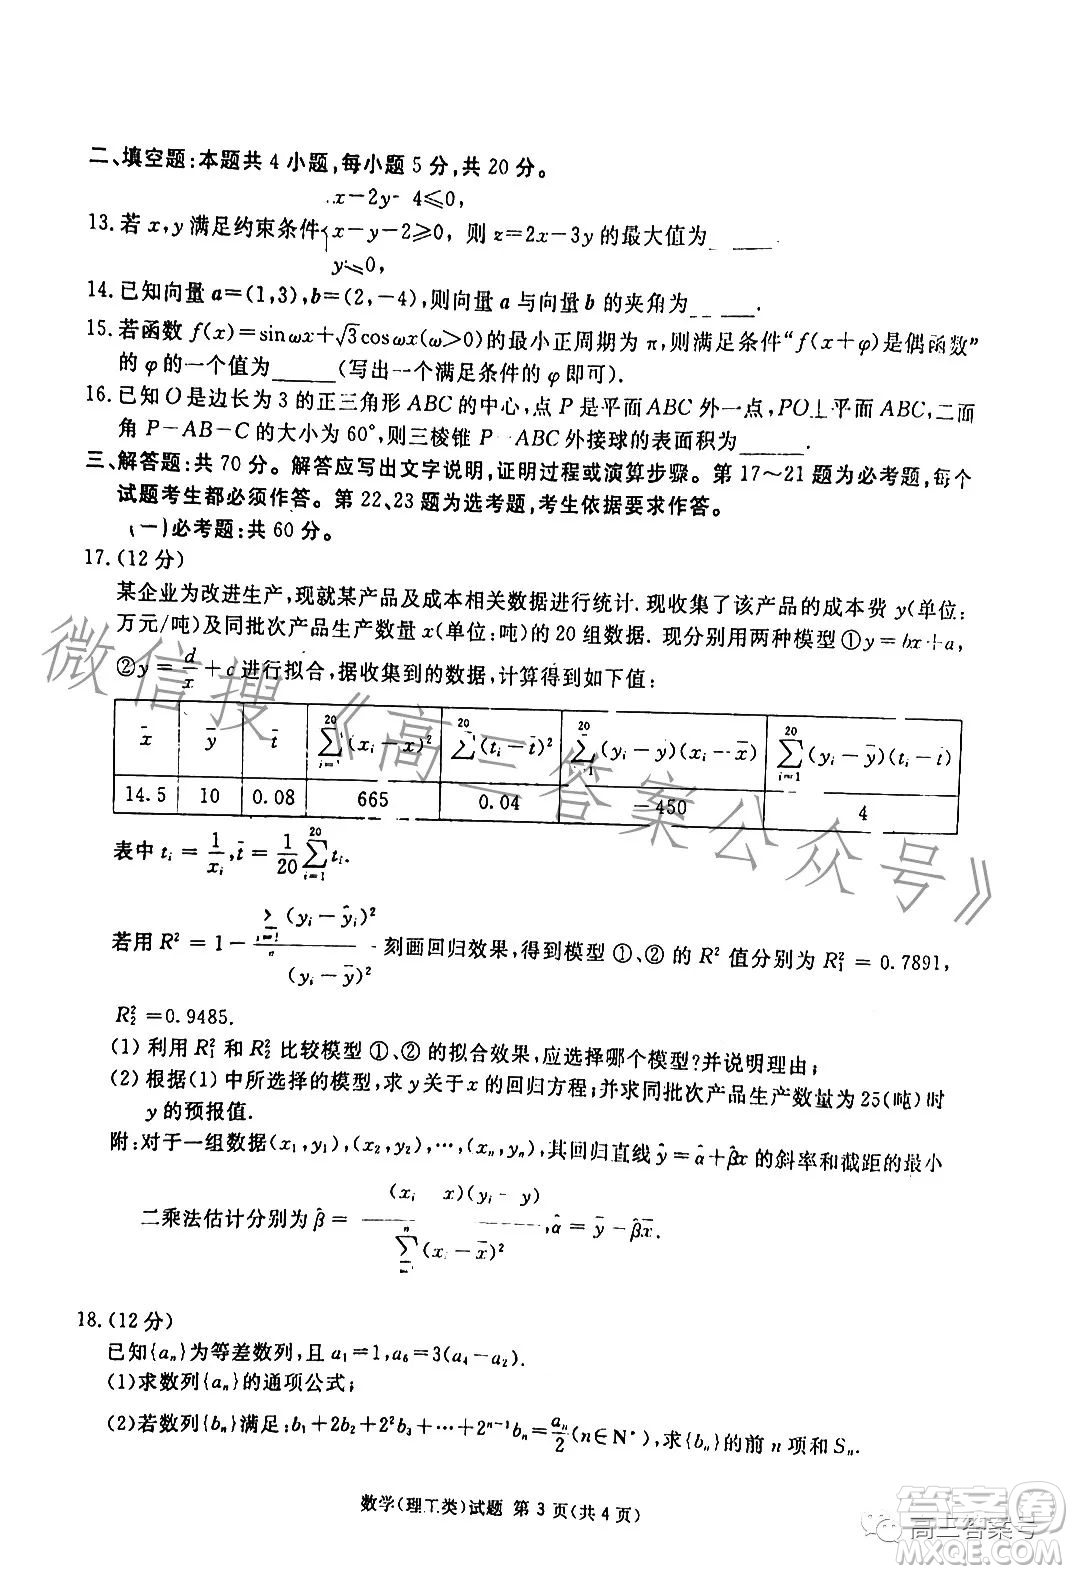 二、填空题:本题共 4 小题,每小题 5 分,共 20 分。
x-2y- 4⩽0,
13. 若 x,y 满足约束条件{x-y-2⩾0, 则 z=2x-3y 的最大值为 ____.
y⩽0,
14. 已知向量 a=(1,3),b=(2,-4),则向量 a 与向量 b 的夹角为 ____.
15. 若函数 f(x)=sinωx+√3cosωx(ω>0)的最小正周期为 π,则满足条件“f(x+φ)是偶函数”
的 φ 的一个值为____(写出一个满足条件的 φ 即可).
16. 已知 O 是边长为 3 的正三角形 ABC 的中心,点 P 是平面 ABC 外一点,PO⊥平面 ABC,二面
角 P-AB-C 的大小为 60°,则三棱锥 P-ABC 外接球的表面积为____.
三、解答题:共 70 分。解答应写出文字说明,证明过程或演算步骤。第 17~21 题为必考题,每个
试题考生都必须作答。第 22、23 题为选考题,考生依据要求作答。
(一)必考题:共 60 分。
17. (12 分)
某企业为改进生产,现就某产品及成本相关数据进行统计.现收集了该产品的成本费 y(单位:
万元/吨)及同批次产品生产数量 x(单位:吨)的 20 组数据.现分别用两种模型①y=bx+a,
②y=d/x+c 进行拟合,据收集到的数据,计算得到如下值:
x̄ ȳ t̄ ∑(i=1,20)(xᵢ-x̄)² ∑(i=1,20)(tᵢ-t̄)² ∑(i=1,20)(yᵢ-ȳ)(xᵢ-x̄) ∑(i=1,20)(yᵢ-ȳ)(tᵢ-t̄)
14.5 10 0.08 665 0.04 -450 4
表中 tᵢ=1/xᵢ, t̄=1/20 ∑(i=1,20) tᵢ.
若用 R²=1- ∑(i=1)(yᵢ-ŷᵢ)² / (yᵢ-ȳ)² 刻画回归效果,得到模型 ①、② 的 R² 值分别为 R₁²=0.7891,
R₂²=0.9485.
(1) 利用 R₁² 和 R₂² 比较模型 ①、② 的拟合效果,应选择哪个模型?并说明理由;
(2) 根据(1) 中所选择的模型,求 y 关于 x 的回归方程;并求同批次产品生产数量为 25(吨)时
y 的预报值.
附:对于一组数据(x₁,y₁),(x₂,y₂),…,(xₙ,yₙ),其回归直线 ŷ=α̂+β̂x 的斜率和截距的最小
二乘法估计分别为 β̂= (xᵢ x)(yᵢ- y) / ∑(n)(xᵢ-x̄)², α̂=ȳ-β̂x̄.
18. (12 分)
已知{aₙ}为等差数列,且 a₁=1,a₆=3(a₄-a₂).
(1)求数列{aₙ}的通项公式;
(2)若数列{bₙ}满足:b₁+2b₂+2²b₃+…+2ⁿ⁻¹bₙ=aₙ/2(n∈N*),求{bₙ}的前 n 项和 Sₙ.
数学(理工类)试题 第 3 页(共 4 页)
微信搜《高三答案公众号》
高三答案号
答案圈
MXQE.COM